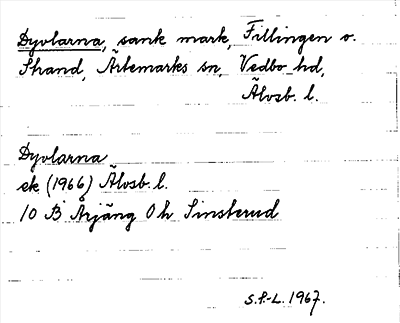 Dyvlarna, sank mark, Fillingen o.
Strand, Ärtemarks sn, Vedbo hd,
Älvsb. l.
Dyvlarna
ek (1966) Älvsb. l.
10 B Årjäng 0 h Sinsterud
S.P-L. 1967.